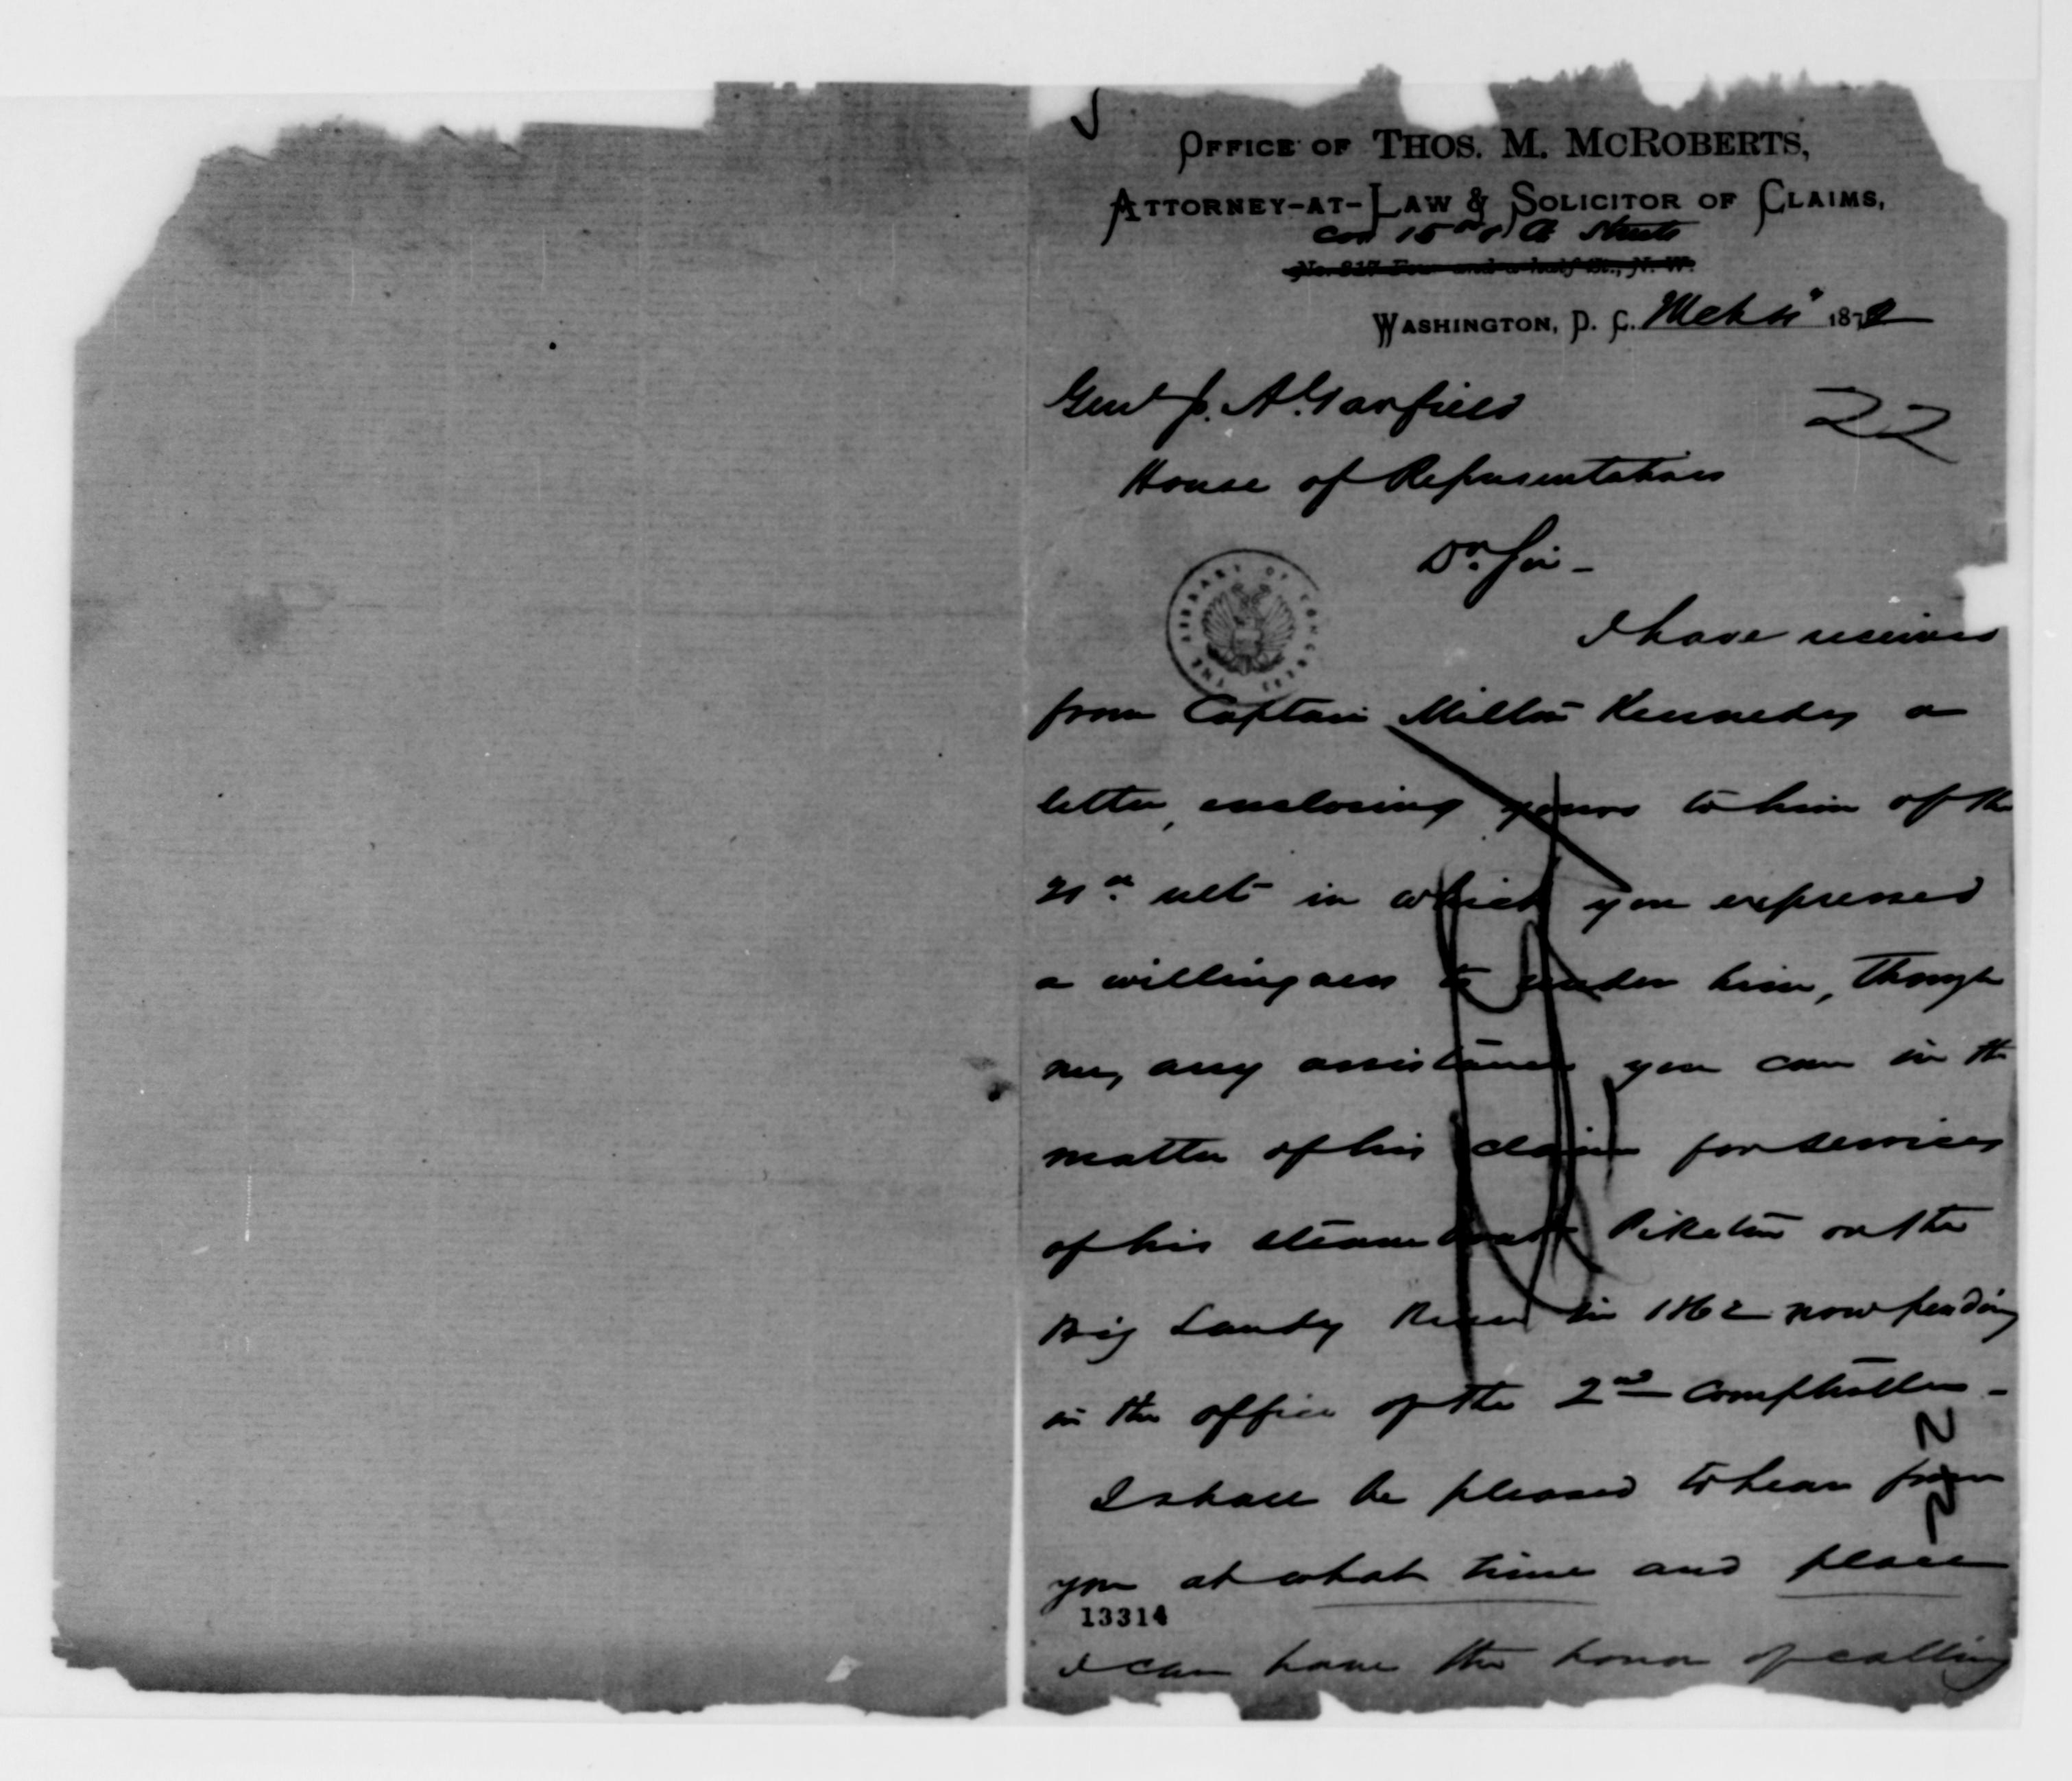 OFFICE OF THOS. M. MCROBERTS,
ATTORNEY-AT-LAW & SOLICITOR OF CLAIMS,
Cor 15th & G Streets
WASHINGTON, D. C. Mch 187
Genl J. A. Garfield
22
House of Representatives
Dr. Sir -
THE LIBRARY OF CONGRESS
I have received
from Captain Milton Kennedy a
letter, enclosing yours to him of the
ult in which you expressed
a willingness to render him, through
me, any assistance you can in the
matter of his claim for services
of his steamboat Piketon on the
Big Sandy River in 1862 now pending
in the office of the 2nd Comptroller -
22
I shall be pleased to hear from
you at what time and place
13314
I can have the honor of calling